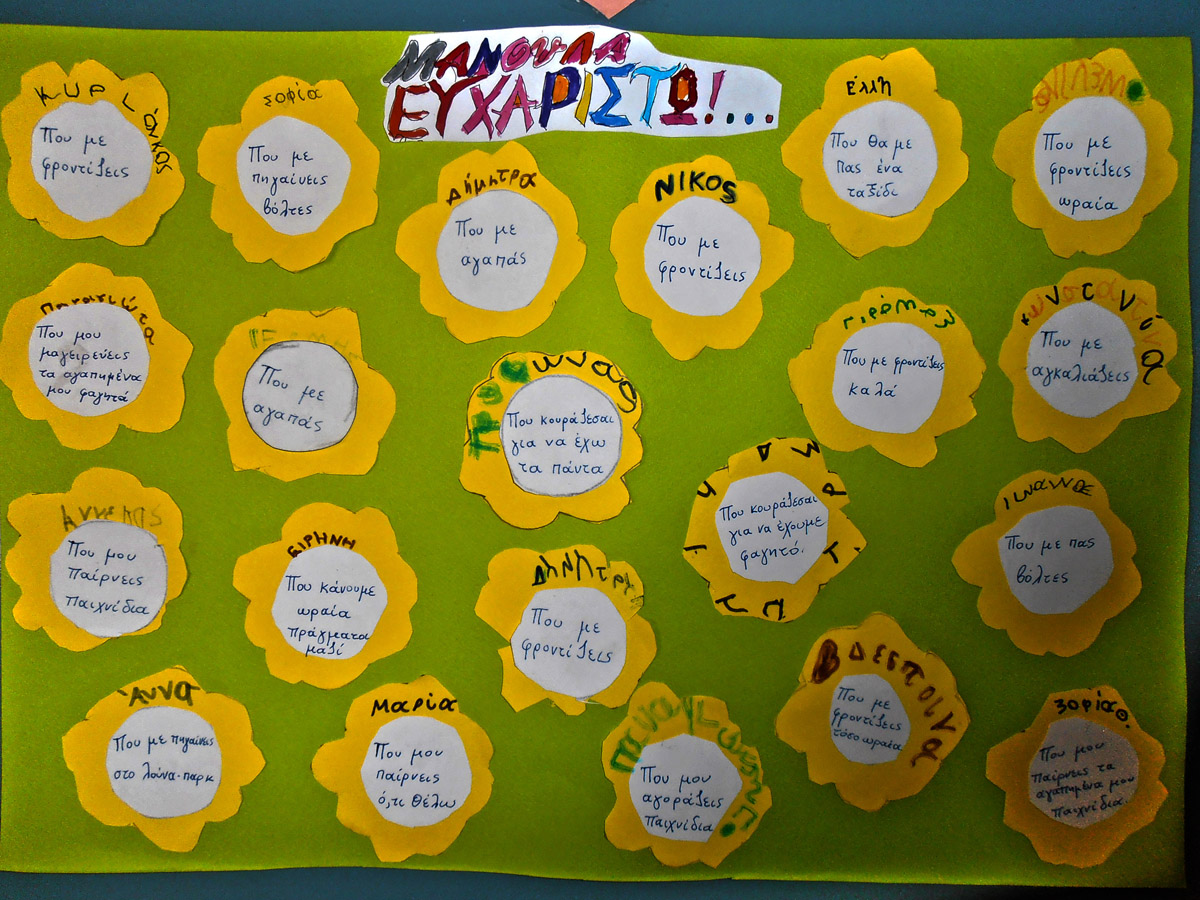 ΜΑΝΟΥΛΑ
ΕΥΧΑΡΙΣΤΩ!....
ΚΥΡΙΑΚΟΣ
Που με
φροντίζεις
Σοφία
Που με
πηγαίνεις
βόλτες
Δήμητρα
Που με
αγαπάς
ΝΙΚΟς
Που με
φροντίζεις
Έλλη
Που θα με
πας ένα
ταξίδι
Που με
φροντίζεις
ωραία
Παναγιώτα
Που μου
μαγειρεύεις
τα αγαπημένα
μου φαγητά
Που με
αγαπάς
Που κουράζεσαι
για να έχω
τα πάντα
Που με φροντίζεις
καλά
κωνσταντίνα
Που με
αγκαλιάζεις
Που μου
παίρνεις
παιχνίδια
ΕΙΡΗΝΗ
Που κάνουμε
ωραία
πράγματα
μαζί
Που με
φροντίζεις
Που κουράζεσαι
για να έχουμε
φαγητό.
Που με πας
βόλτες
Άννα
Που με πηγαίνεις
στο λούνα-παρκ
Μαρία
Που μου
παίρνεις
ό,τι θέλω
Παναγιώτης
Που μου
αγοράζεις
παιχνίδια
ΒΔΕΣΠΟΙΝΑ
Που με
φροντίζεις
τόσο ωραία
Σοφία Θ.
Που μου
παίρνεις τα
αγαπημένα μου
παιχνίδια.